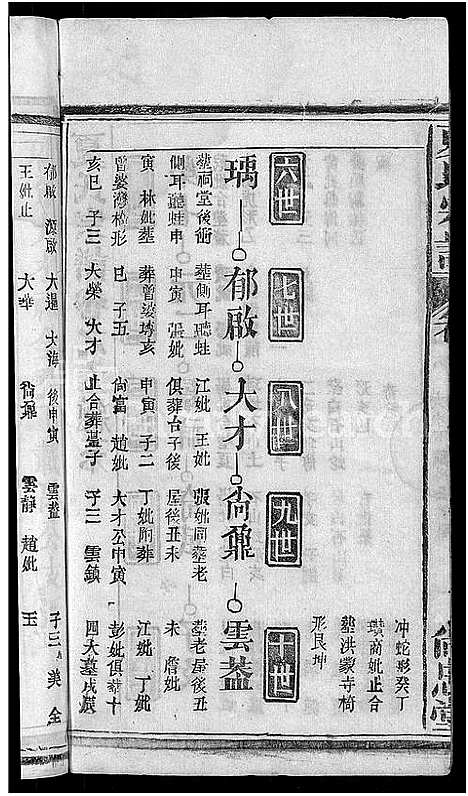 冲蛇形癸丁
瓚喬妣止合
塟洪蒙寺椅
形艮坤
六世 七世 八世 九世 十世
瑀 郁啟 大才 尚鼐 雲益
塟祠堂後衝 塟側耳聽蛙 江妣 王妣 張妣同塟老 塟老屋後丑
側耳聽蛙申 申寅 張妣 俱葬台子後 屋後丑未 未 詹妣
寅 林妣塟 葬曾婆塆亥 申寅 子二 丁妣祔葬 江妣 丁妣
曾婆灣松形 巳 子五 尚富 趙妣 大才公申寅 彭妣俱葬十
亥巳 子三 大榮 大才 止合葬臺子 子三 雲鎮 四大墓戌
郁啟 漢啟 大暹 大海 後申寅 雲益 子三 美全
王妣止 大華 尚鼐 雲靜 趙妣 玉